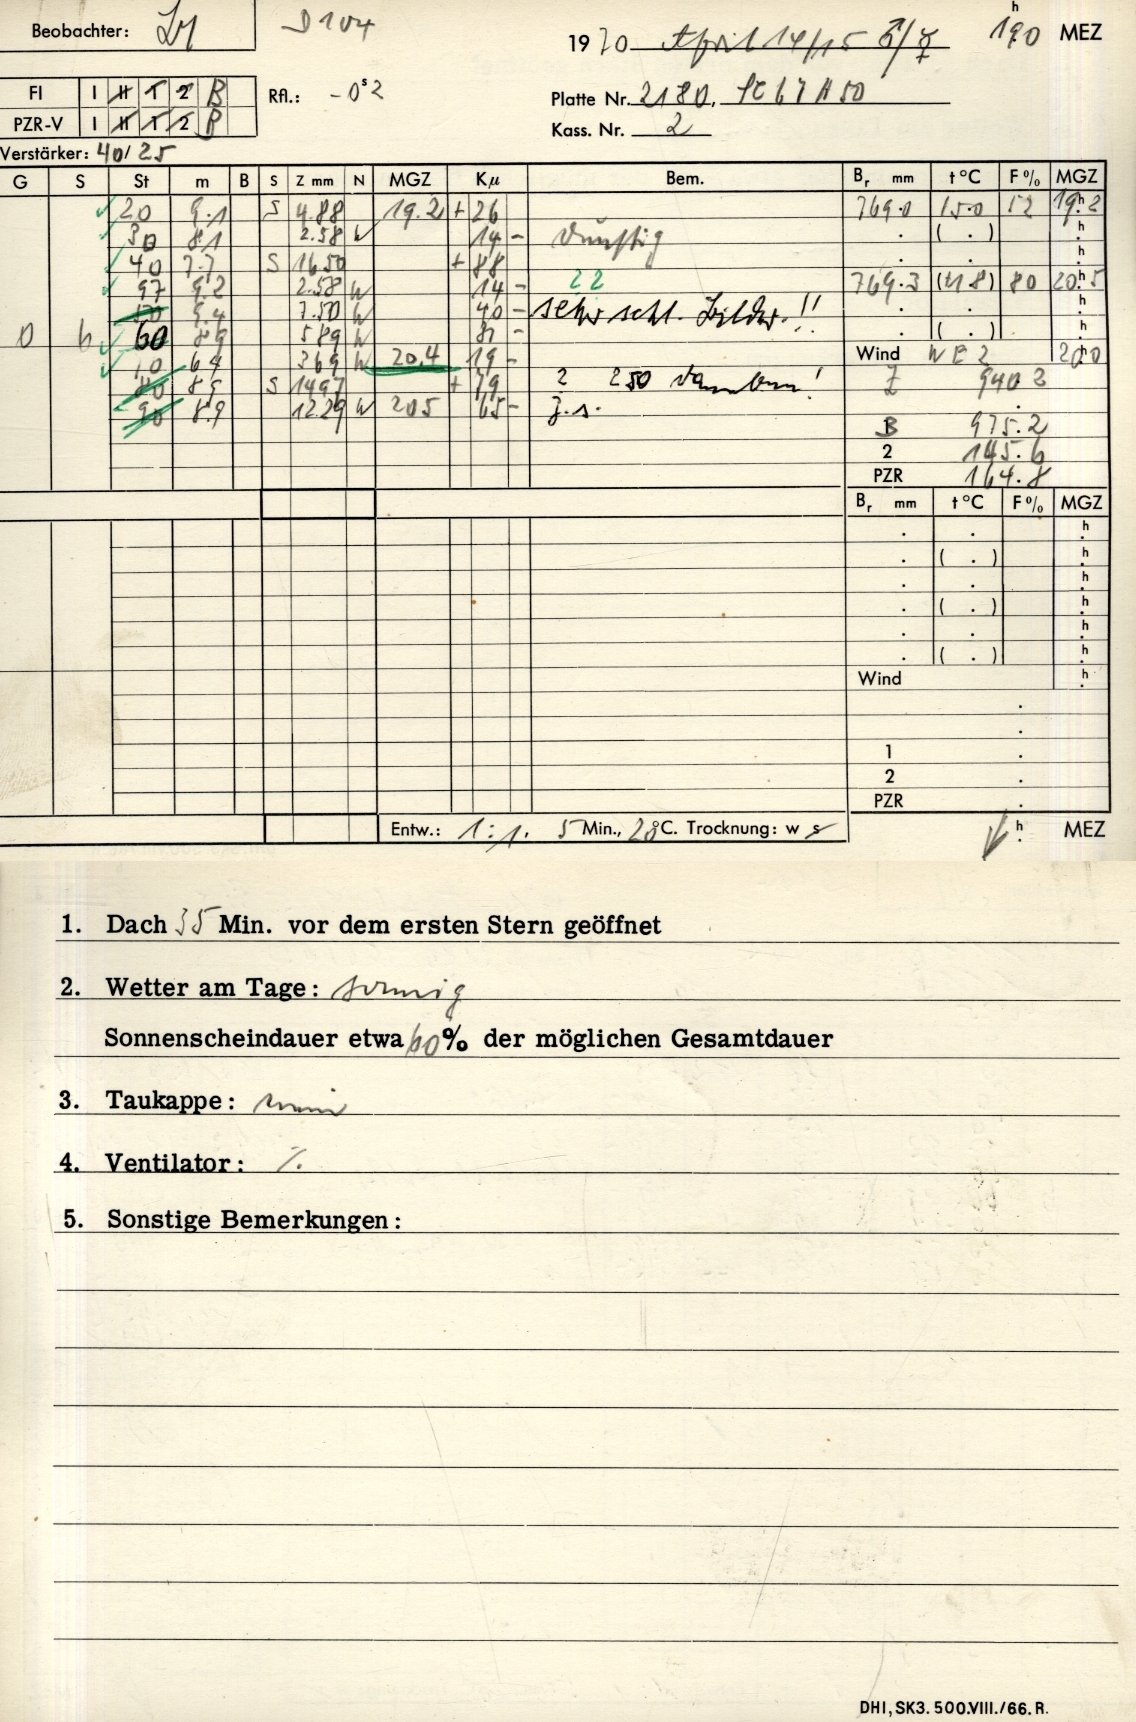 Beobachter: D 104
1970 April 14/15 ♂/☿ 19h0 MEZ
FI I II 1 2 B Rfl.: -0s2
Platte Nr. 2180, SC 67 A 50
PZR-V I II 1 2 B
Kass. Nr. 2
Verstärker: 40/25
G S St m B S Z mm N MGZ Kμ Bem. Br mm t °C F % MGZ
20 9.1 S 4.88 19.2 + 26 769.0 15.0 52 19h2
30 8.1 2.58 W 14 - dunstig . ( . ) h
40 7.7 S 1650 + 88 . . h
97 9.2 2.58 W 14 - 22 769.3 (11.8) 80 20h5
9.4 7.50 W 40 - sehr schl. Bilder!! . . h
0 6 60 8.9 589 W 31 - . ( . ) h
10 6.9 369 W 20.4 19 - Wind NE 2 20h0
80 8.9 S 1497 + 79 2 250 ! Z 940 2
90 8.9 12.29 W 205 65 - z.s.
B 975.2
2 145.6
PZR 164.8
Br mm t °C F % MGZ
. . h
. ( . ) h
. . h
. ( . ) h
. . h
. ( . ) h
Wind h
.
.
1 .
2 .
PZR .
Entw.: 1:1. 5 Min., 20 °C. Trocknung: w s h MEZ
1. Dach 35 Min. vor dem ersten Stern geöffnet
2. Wetter am Tage: sonnig
Sonnenscheindauer etwa 60 % der möglichen Gesamtdauer
3. Taukappe: nein
4. Ventilator: ⁒
5. Sonstige Bemerkungen:
DHI, SK3. 500.VIII./66. R.